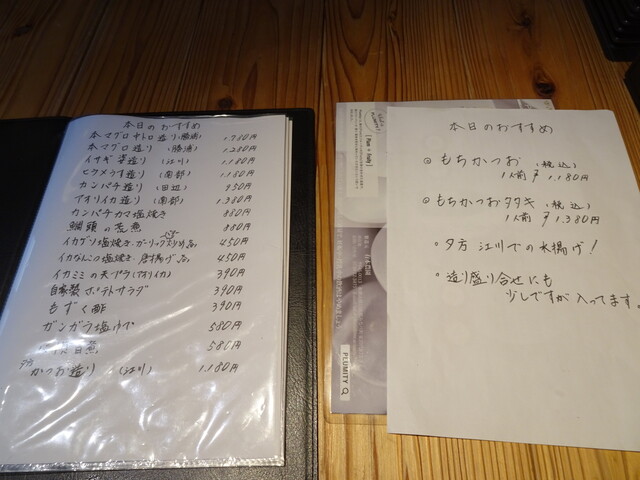 本日のおすすめ
本マグロ中トロ造り(勝浦) 1,780円
本マグロ造り (勝浦) 1,280円
イサギ姿造り (江川) 1,180円
ヒラメうす造り (南部) 1,180円
カンパチ造り (田辺) 950円
アオリイカ造り (南部) 1,380円
カンパチカマ塩焼き 880円
鯛頭の荒煮 880円
イカゲソ塩焼き・ガーリック 450円
イカなんこつ塩焼き・唐揚げ 450円
イカミミの天プラ(アオリイカ) 390円
自家製ポテトサラダ 390円
もずく酢 390円
ガンガラ塩ゆで 580円
580円
夕方
かつお造り (江川) 1,180円
本日のおすすめ
◎ もちかつお (税込)
1人前 ¥1,180円
◎ もちかつおタタキ (税込)
1人前 ¥1,380円
・夕方 江川での水揚げ!
・造り盛り合せにも
少しですが入ってます。
PLUMITY Q